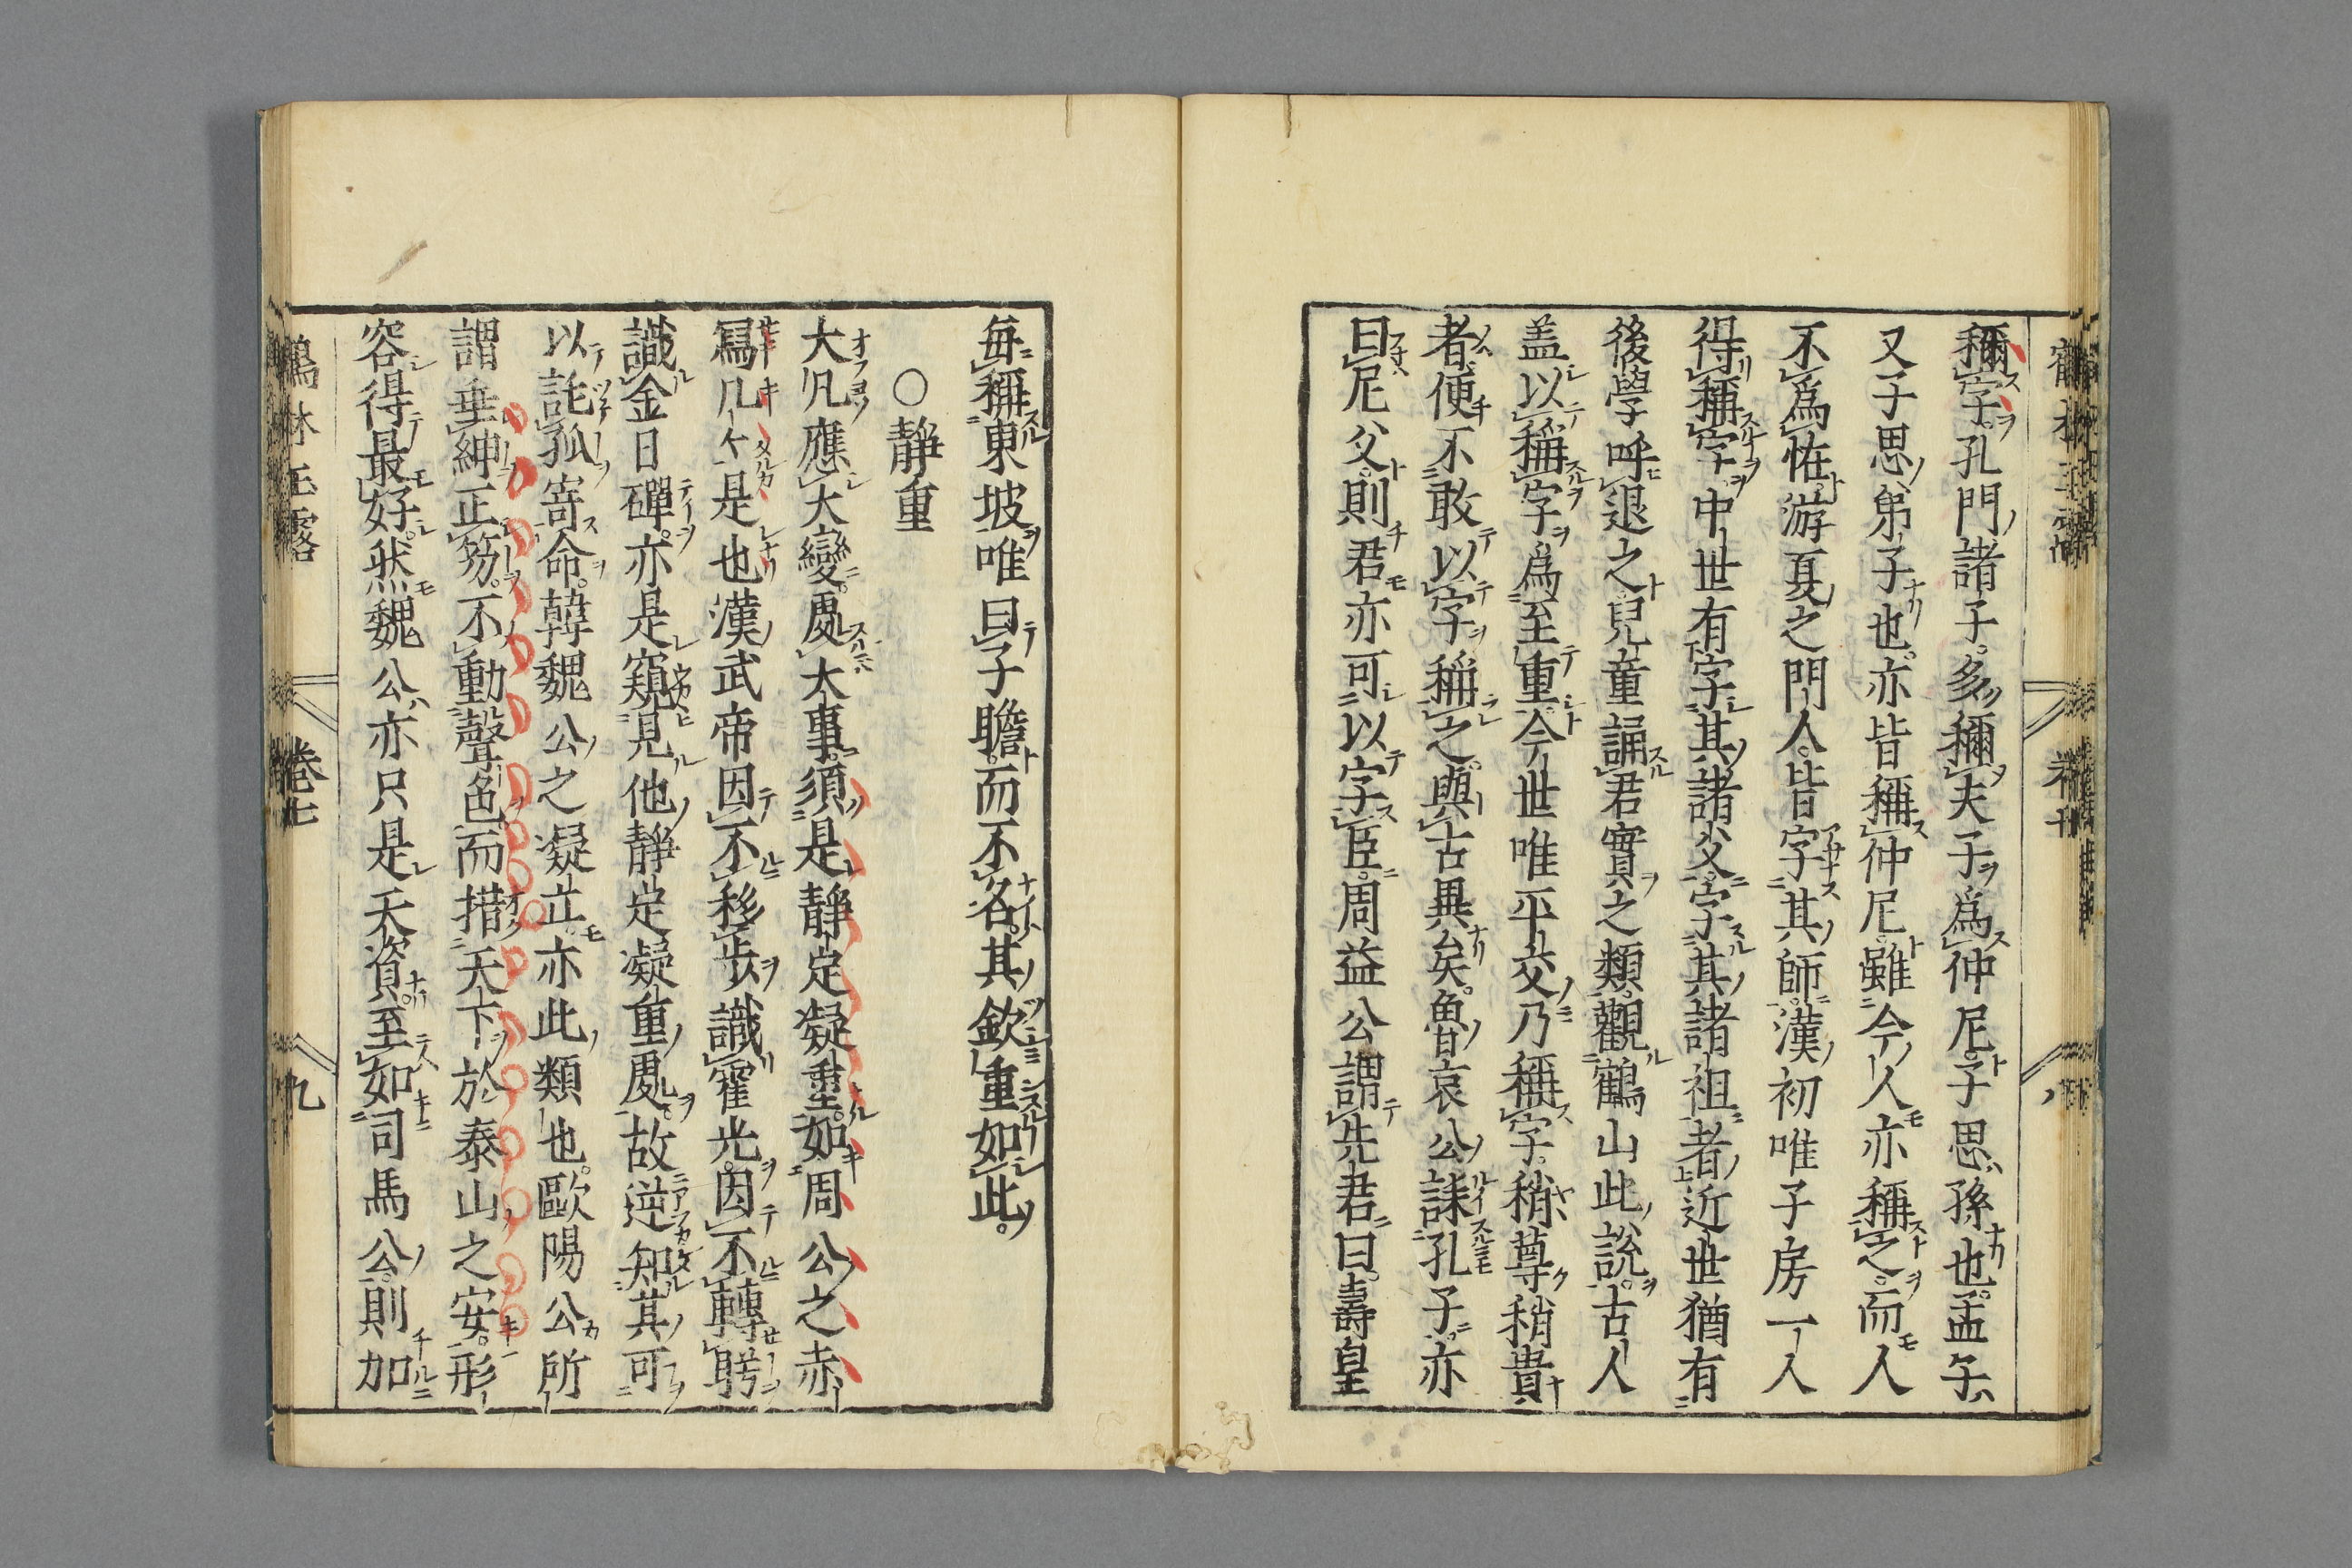 稱字孔門諸子多稱夫子爲仲尼子思孫也孟子
又子思弟子也亦皆稱仲尼雖今人亦稱之而人
不爲怪游夏之門人皆字其師漢初唯子房一人
得稱字中世有字其諸父字其諸祖者近世猶有
後學呼退之兒童誦君實之類觀鶴山此說古人
盖以稱字爲至重今世唯平交乃稱字稍尊稍貴
者便不敢以字稱之與古異矣魯哀公誄孔子亦
曰尼父則君亦可以字臣周益公謂先君曰壽皇
每稱東坡唯曰子瞻而不名其欽重如此
○靜重
大凡應大變處大事須是靜定凝重如周公之赤
舄几几是也漢武帝因不移步識霍光因不轉眄
識金日磾亦是窺見他靜定凝重處故逆知其可
以託孤寄命韓魏公之凝立亦此類也歐陽公所
謂垂紳正笏不動聲色而措天下於泰山之安形
容得最好然魏公亦只是天資至如司馬公則加
鶴林玉露 卷七 九